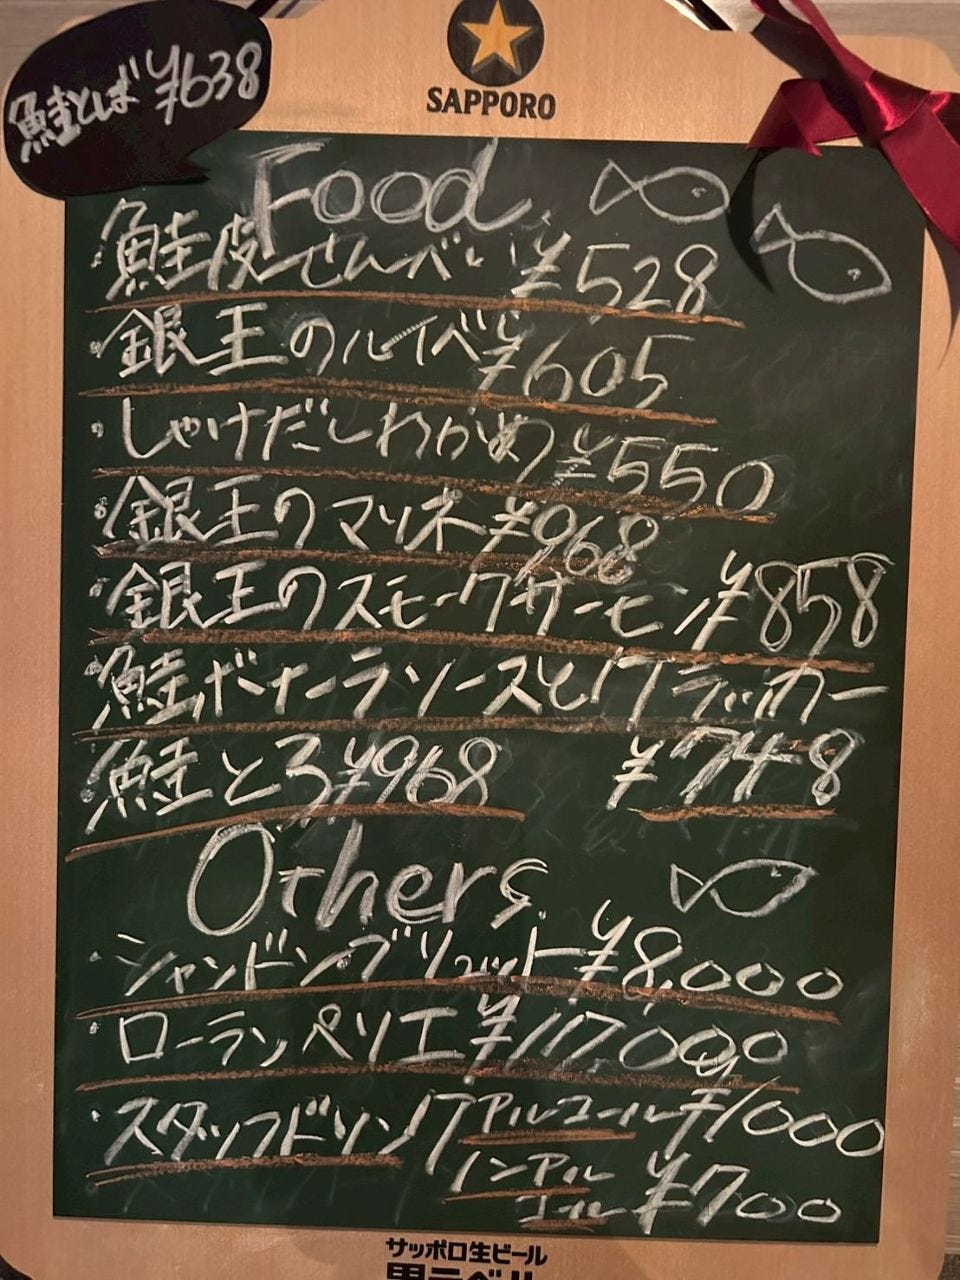 鮭とば ¥638
SAPPORO
Food
・鮭皮せんべい ¥528
・銀王のルイベ ¥605
・しゃけだしわかめ ¥550
・銀王のマリネ ¥968
・銀王のスモークサーモン ¥858
・鮭ボナーラソースとクラッカー
¥748
鮭とろ ¥968
Others
・シャンドンブリュット ¥8,000
・ローランペリエ ¥17,000
・スタッフドリンク アルコール ¥1000
ノンアル
コール ¥700
サッポロ生ビール
黒ラベル